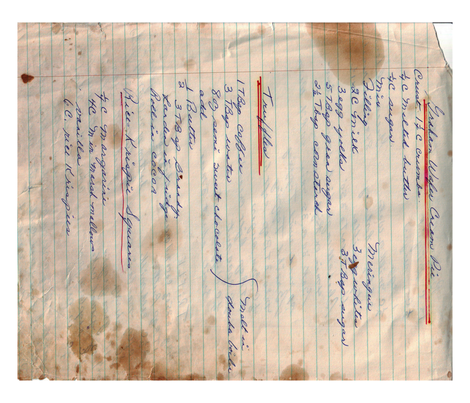 Graham Wafer Cream Pie
Crust 1½ C crumbs
¼ C melted butter
¼ C sugar
Mix
Filling
2 C milk
3 egg yolks
5 Tbsp gran sugar
2½ Tbsp cornstarch
Meringue
3 egg whites
3 Tbsp sugar
Truffles
1 Tbsp coffee
3 Tbsp water
8 oz semi sweet chocolate
Melt in
double boiler
add
½ Butter
3 Tbsp Brandy
Harden in fridge
Roll in cocoa
Rice Krispie Squares
¼ C Margarine
4 C Min Marsh mellows
vanilla
6 C rice Krispies